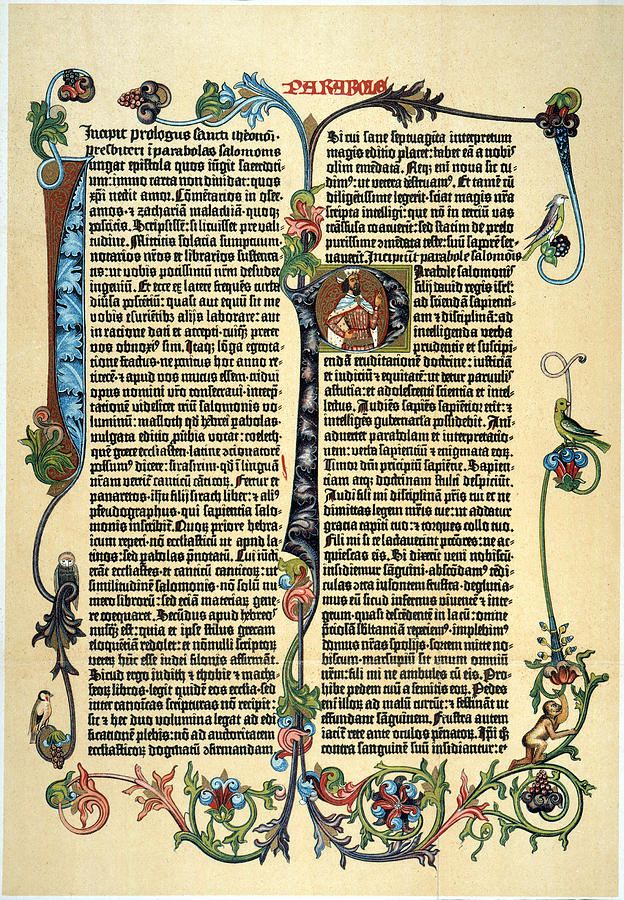 PARABOLE
Incipit prologus sancti iheronimi
presbiteri i parabolas salomonis
Iungat epistola quos iūgit sacerdoci-
um: immo carta non dividat: quos
xp̄i nectit amor. Cōmētarios in osee-
amos· ⁊ zachariā malachiā· quoq̄
poscitis. Scripsissē: si licuisset pre vali-
tudine. Mittitis solacia sumptuum·
notarios nr̄os et librarios sustenta-
tis: ut vobis potissimū nr̄m desudet
ingeniū. Et ecce ex latere frequēs turba
diūsa poscētiū: quasi aut equū sit me
vobis esuriētibs alijs laborare: aut
in ratione dati et accepti· cuiq̄ preter
vos obnoxi9 sim. Itaq̄ lōga egrota-
tione fractus· ne penitus hoc anno re-
ticerē· ⁊ apud vos mutus essem· tridui
opus nomini vr̄o consecravi· interp̄-
tationē videlicet triū salomonis vo-
luminū: masloth qd̄ hebrei pabolas·
vulgata editio p̄ubia vocat: coeleth·
quē grece ecclesiasten· latine ꝯcionatorē
possum9 dicere: sirasirim· qd̄ i linguā
nr̄am vertit canticū cāticor̄. Fertur et
panaretos· ih̄u filij sirach liber: ⁊ ali9
pseudographus· qui sapientia salo-
monis inscribit̄. Quor̄ priore hebra-
icum reperi· nō ecclesiasticū ut apud la-
tinos: sed pabolas p̄notatū. Cui iūcti
erāt ecclesiastes· et canticū canticor̄: ut
similitudinē salomonis· nō solū nu-
mero libror̄: sed etiā materiar̄ gene-
re coequaret. Secūdus apud hebreos
nusq̄ est: quia et ipse stilus grecam
eloquētiā redolet: et nonnulli scriptor̄
veter̄ hūc esse iudei filonis affirmāt.
Sicut ergo iudith ⁊ thobie ⁊ macha-
beor̄ libros· legit quidē eos ecclesia· sed
inter canoīcas scripturas nō recipit:
sic ⁊ hec duo volumina legat ad edi-
ficationē plebis: nō ad auctoritatem
ecclesiasticor̄ dogmatū ꝯfirmandam.
Si cui sane septuagīta interpretum
magis editio placet: habet eā a nobis
olim emēdatā. Neq̄ eni nova sic cu-
dim9: ut vetera destruam9. Et tamē cū
diligētissime legerit· sciat magis nr̄a
scripta intelligi: que nō in terciū vas
trāsfusa coacuerit: sed statim de prelo
purissime ꝯmēdata teste: suū saporē ser-
vaverit. Incipiunt parabole salomōis
Parabole salomonis
filij david regis isrl̄:
ad sciendā sapienti-
am ⁊ disciplinā: ad
intelligenda verba
prudentie et suscipi-
endā eruditationē doctrine: iusticiā
et iudiciū ⁊ equitatē: ut detur parvulis
astutia: et adolescenti scientia et intel-
lectus. Audiēs sapiēs sapiētior̄ erit: ⁊
intelligēs gubernacla possidebit. Ani-
advertet parabolam et interpretatio-
nem: verba sapientiū ⁊ enigmata eor̄.
Timor dn̄i principiū sapiētie. Sapien-
tiam atq̄ doctrinam stulti despiciūt.
Audi fili mi disciplinā pr̄is tui et ne
dimittas legem mr̄is tue: ut addatur
gratia capiti tuo: ⁊ torques collo tuo.
Fili mi si te lactaverint pctōres: ne ac-
quiescas eis. Si dixerit veni nobiscū·
insidiemur sāguini· abscōdam9 tēdi-
culas ꝯtra insontem frustra· degluciam-
mus eū sicud infernus viventē ⁊ inte-
grum· quasi descēdentē in lacū: omnē
p̄ciosā substantiā repeiem9· implebim9
domus nr̄as spolijs· sortem mitte no-
biscum· marsupiū sit unum omniū
nr̄m: fili mi ne ambules cū eis. Pro-
hibe pedem tuū a semitis eor̄. Pedes
eni illor̄ ad malū currūt: ⁊ festināt ut
effundant sāguinem. Frustra autem
iacit̄ rete ante oculos pēnator̄. Ipsi q̄
contra sanguinē suū insidiantur: et